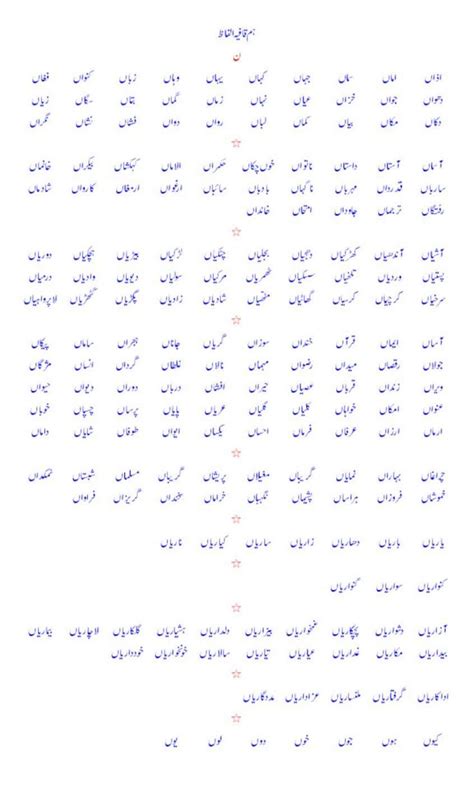 ہم قافیہ الفاظ
ں
اذاں اماں سماں جہاں کہاں یہاں وہاں زباں کنواں فغاں
دھواں جواں خزاں عیاں نہاں زماں گماں بتاں سگاں زیاں
دکاں مکاں بیاں کماں لباں رواں دواں فشاں نشاں نگراں
☆
آسماں آستاں داستاں ناتواں خوں چکاں حکمراں الاماں کہکشاں بیکراں خانماں
سارباں قدرداں مہرباں ناگہاں بادباں سائباں ارغواں ارمغاں کارواں شادماں
رفتگاں ترجماں جاوداں امتحاں خانداں
☆
آشیاں آندھیاں کھڑکیاں دھجیاں بجلیاں چٹکیاں لڑکیاں بیڑیاں ہچکیاں دوریاں
پستیاں وردیاں تلخیاں سسکیاں ٹھمریاں مرکیاں سولیاں دیویاں وادیاں درمیاں
سرخیاں کرچیاں کرسیاں گھاٹیاں مٹھیاں شادیاں زادیاں پگڑیاں گٹھڑیاں لاپرواہیاں
☆
آساں ایماں قرآں خنداں سوزاں گریاں جاناں ہجراں ساماں پیکاں
جولاں رقصاں میداں رضواں مہماں نالاں غلطاں گرداں انساں مژگاں
ویراں زنداں قرباں عصیاں حیراں افشاں درباں دوراں دیواں حیواں
عنواں امکاں خواہاں کلیاں گلیاں عریاں پایاں پرساں چسپاں خوباں
ارماں ارزاں عرفاں فرماں احساں یکساں ایواں طوفاں شایاں داماں
☆
چراغاں بہاراں نمایاں گریباں مغیلاں پریشاں گریباں مسلماں شبستاں نمکداں
خموشاں فروزاں ہراساں پشیماں نگہباں خراماں سخنداں گریزاں فراواں
☆
یاریاں باریاں دھاریاں زاریاں ساریاں کیاریاں ناریاں
☆
کنواریاں سواریاں گنواریاں
☆
آزاریاں دشواریاں پچکاریاں غمخواریاں بیزاریاں دلداریاں ہشیاریاں گلکاریاں لاچاریاں بیماریاں
بیداریاں مکاریاں غداریاں عیاریاں تیاریاں سالاریاں خونخواریاں خودداریاں
☆
اداکاریاں گرفتاریاں ملنساریاں عزاداریاں مددگاریاں
☆
کیوں ہوں جوں خوں دوں لوں یوں